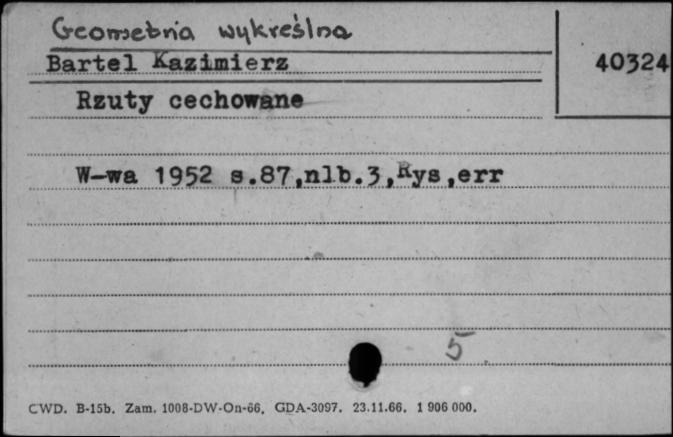 Geometria wykreślna
Bartel Kazimierz
40324
Rzuty cechowane
W-wa 1952 s.87,nlb.3,Rys,err
5
CWD. B-15b. Zam. 1008-DW-On-66. GDA-3097. 23.11.66. 1 906 000.